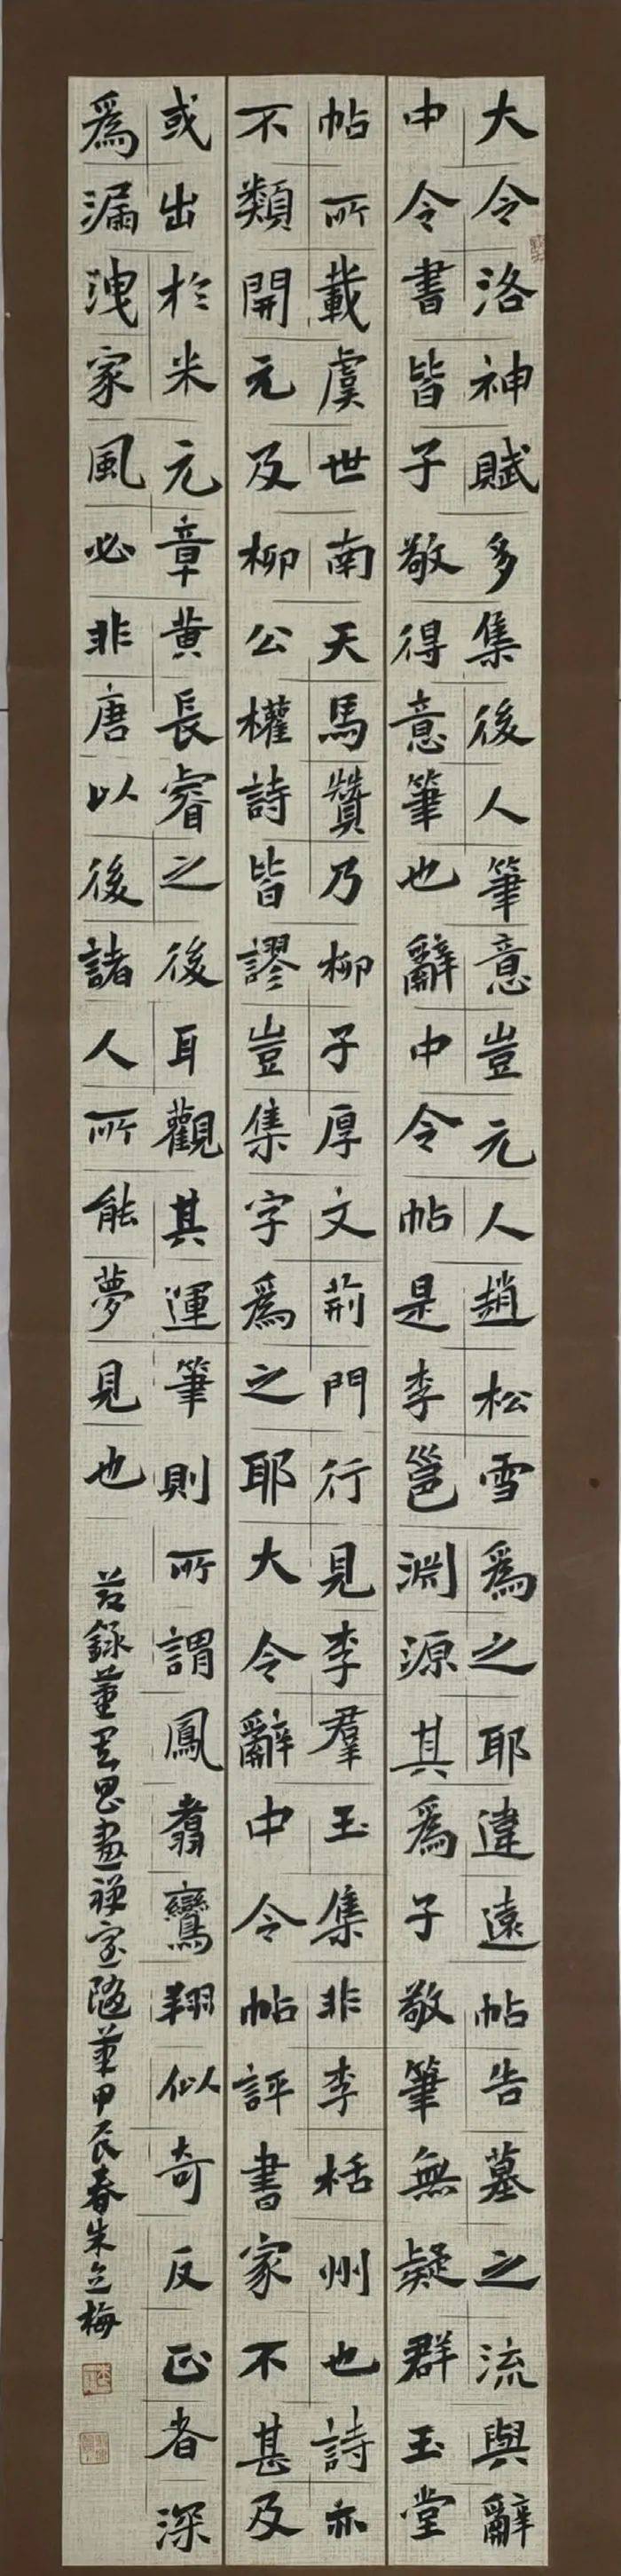 大令洛神賦多集後人筆意豈元人趙松雪爲之耶違遠帖告墓之流與辭
中令書皆子敬得意筆也辭中令帖是李邕淵源其爲子敬筆無疑群玉堂
帖所載虞世南天馬贊乃柳子厚文荊門行見李羣玉集非李栝州也詩亦
不類開元及柳公權詩皆謬豈集字爲之耶大令辭中令帖評書家不甚及
或出於米元章黃長睿之後耳觀其運筆則所謂鳳翥鸞翔似奇反正者深
爲漏洩家風必非唐以後諸人所能夢見也
節錄董其昌畫禪室隨筆甲辰春朱立梅